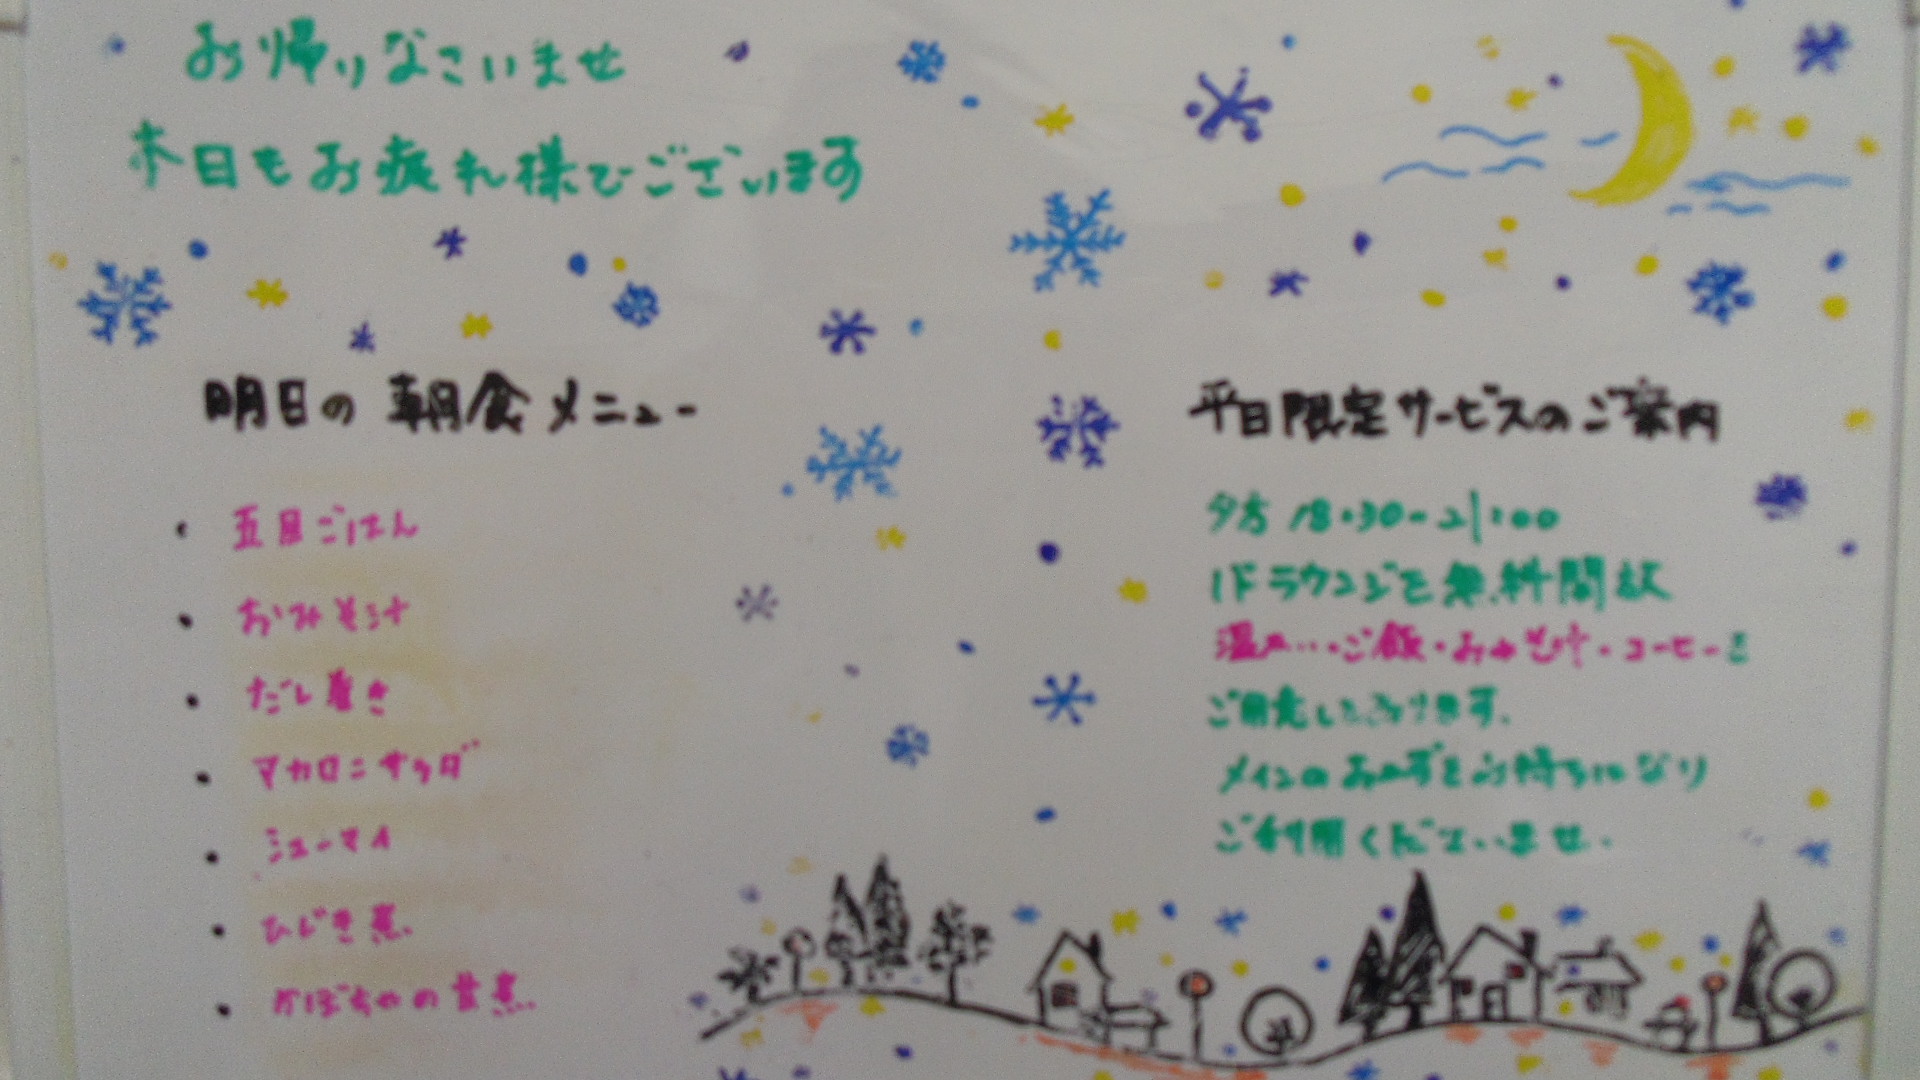 お帰りなさいませ
本日もお疲れ様でございます
明日の朝食メニュー
・五目ごはん
・おみそ汁
・だし巻き
・マカロニサラダ
・シューマイ
・ひじき煮
・かぼちゃの甘煮
平日限定サービスのご案内
夕方 18:30-21:00
1Fラウンジを無料開放
ご飯・おみそ汁・コーヒーを
ご用意しております。
メインのおかずをお持ちになり
ご利用くださいませ。